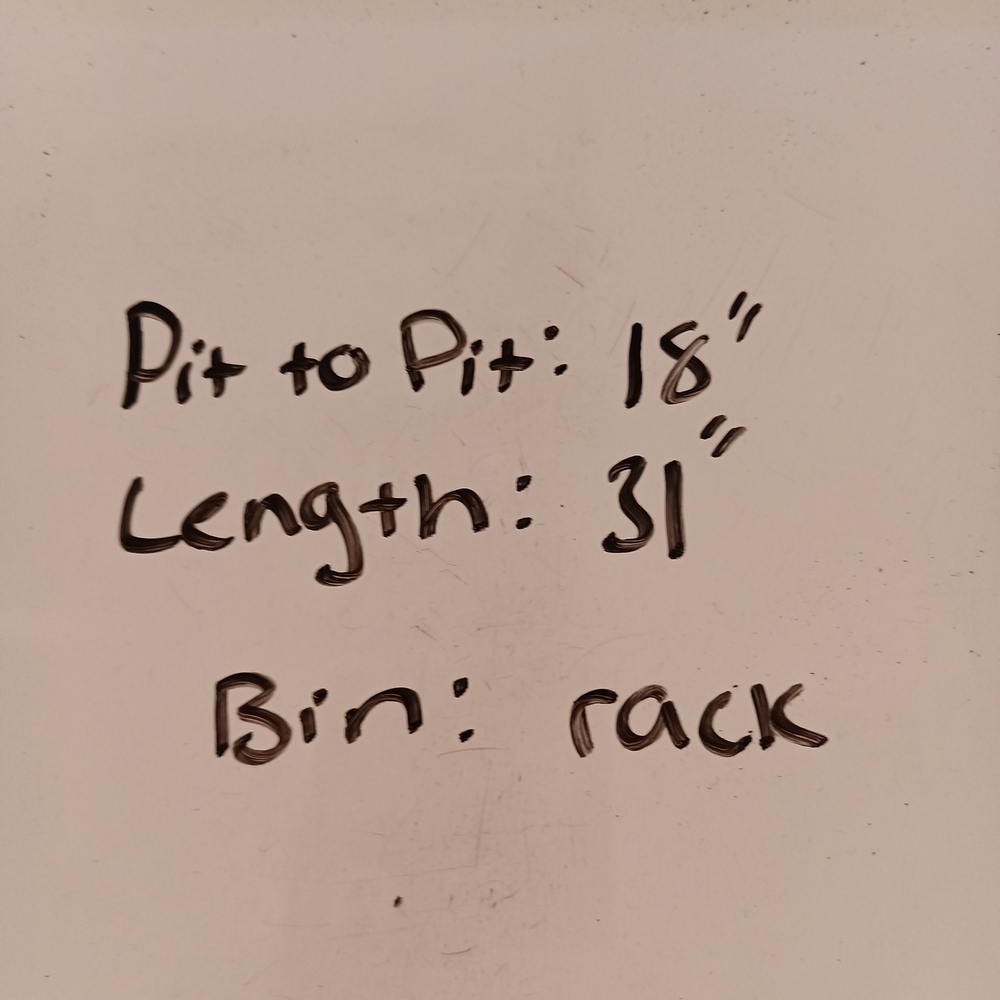 Pit to Pit: 18"
Length: 31"
Bin: rack